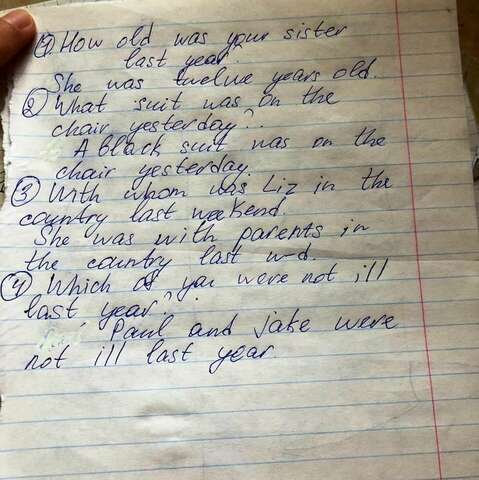 ① How old was your sister
last year?
She was twelve years old.
② What suit was on the
chair yesterday?
A black suit was on the
chair yesterday.
③ With whom was Liz in the
country last weekend.
She was with parents in
the country last w-d.
④ Which of you were not ill
last year?
Paul and jake were
not ill last year